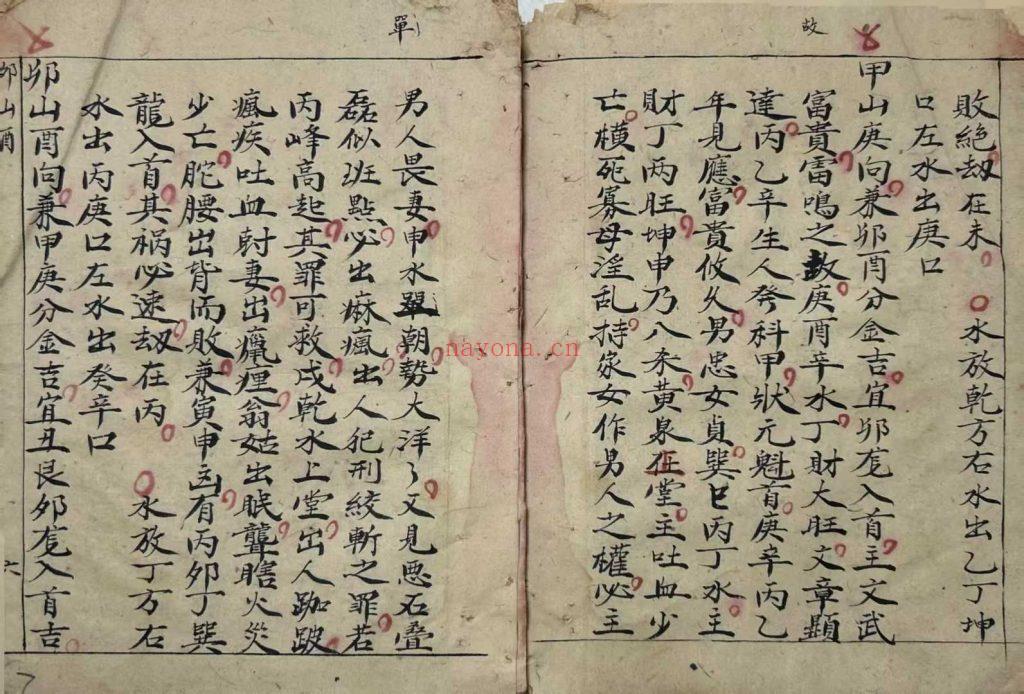 故
敗絕劫在未 水放乾方右水出乙丁坤
口左水出庚口
甲山庚向兼夘酉分金吉宜夘龙入首主文武
富貴雷鳴之故庚酉辛水丁財大旺文章顯
達丙乙辛生人癹科甲狀元魁首庚辛丙乙
年見應富貴攸久男忠女貞巽巳丙丁水主
財丁两旺坤申乃八杀黄泉在堂主吐血少
亡橫死寡母淫乱持家女作男人之權必主
單
男人畏妻申水單朝勢大洋〻又見恶石叠
磊似班點必出麻瘋出人犯刑絞斬之罪若
丙峰高起其罪可救戌乾水上堂出人跏跛
瘋疾吐血尅妻出癲痙翁姑出眠聾瞎火災
少亡胣腰出背而敗兼寅申凶有丙夘丁巽
龍入首其禍必速劫在丙 水放丁方右
水出丙庚口左水出癸辛口
夘山酉向兼甲庚分金吉宜丑艮夘龙入首吉
夘山酉
六
nayona.cn